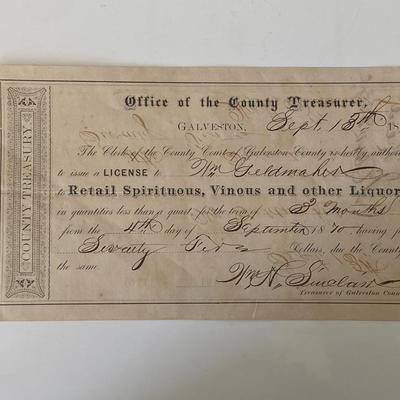 COUNTY TREASURY
Office of the County Treasurer,
GALVESTON, Sept. 13th 18
The Clerk of the County Court of Galveston County is hereby authori
to issue a LICENSE to Wm Geldmaker
to Retail Spirituous, Vinous and other Liquor
in quantities less than a quart, for the term of 3 Months
from the 4th day of September 1870, having
Seventy Five Dollars, due the County
the same.
Wm H. Sinclair
Treasurer of Galveston Coun